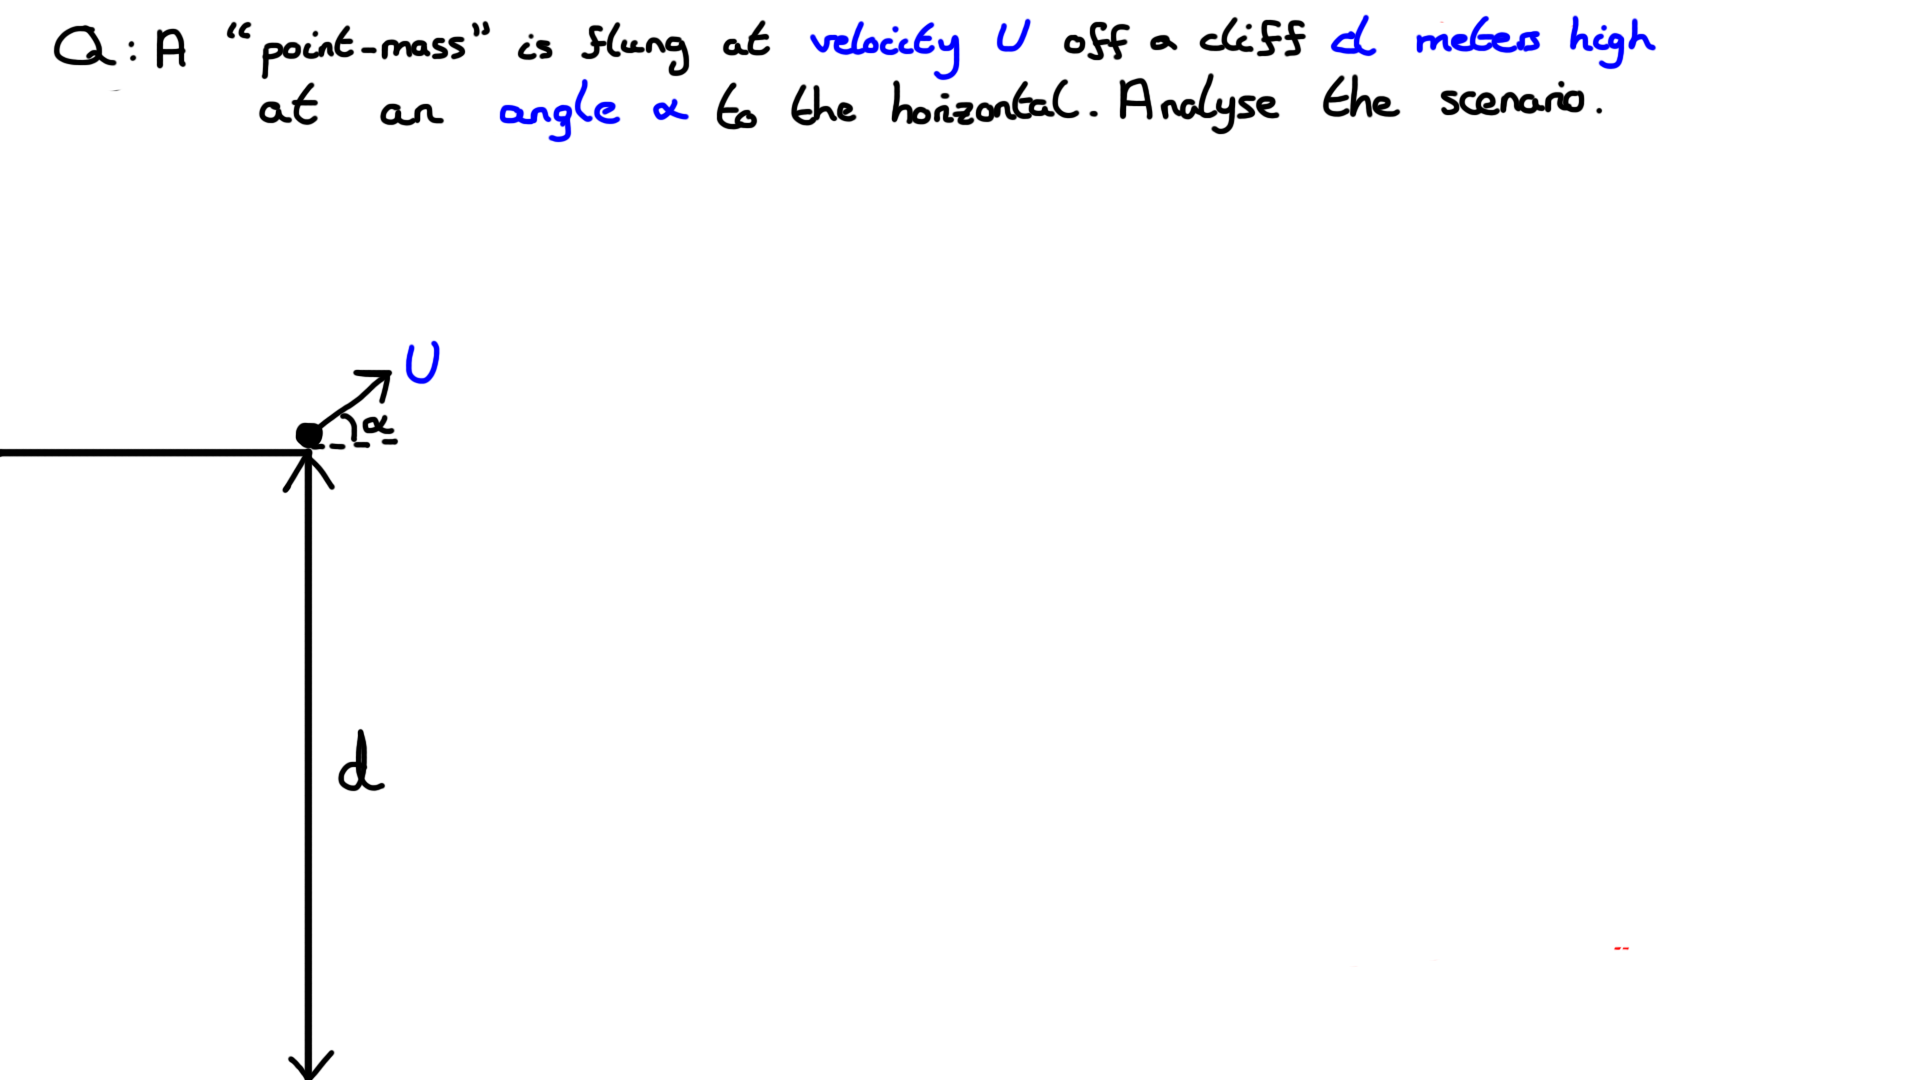 Q: A “point-mass” is flung at velocity U off a cliff d meters high
at an angle α to the horizontal. Analyse the scenario.
U
α
d